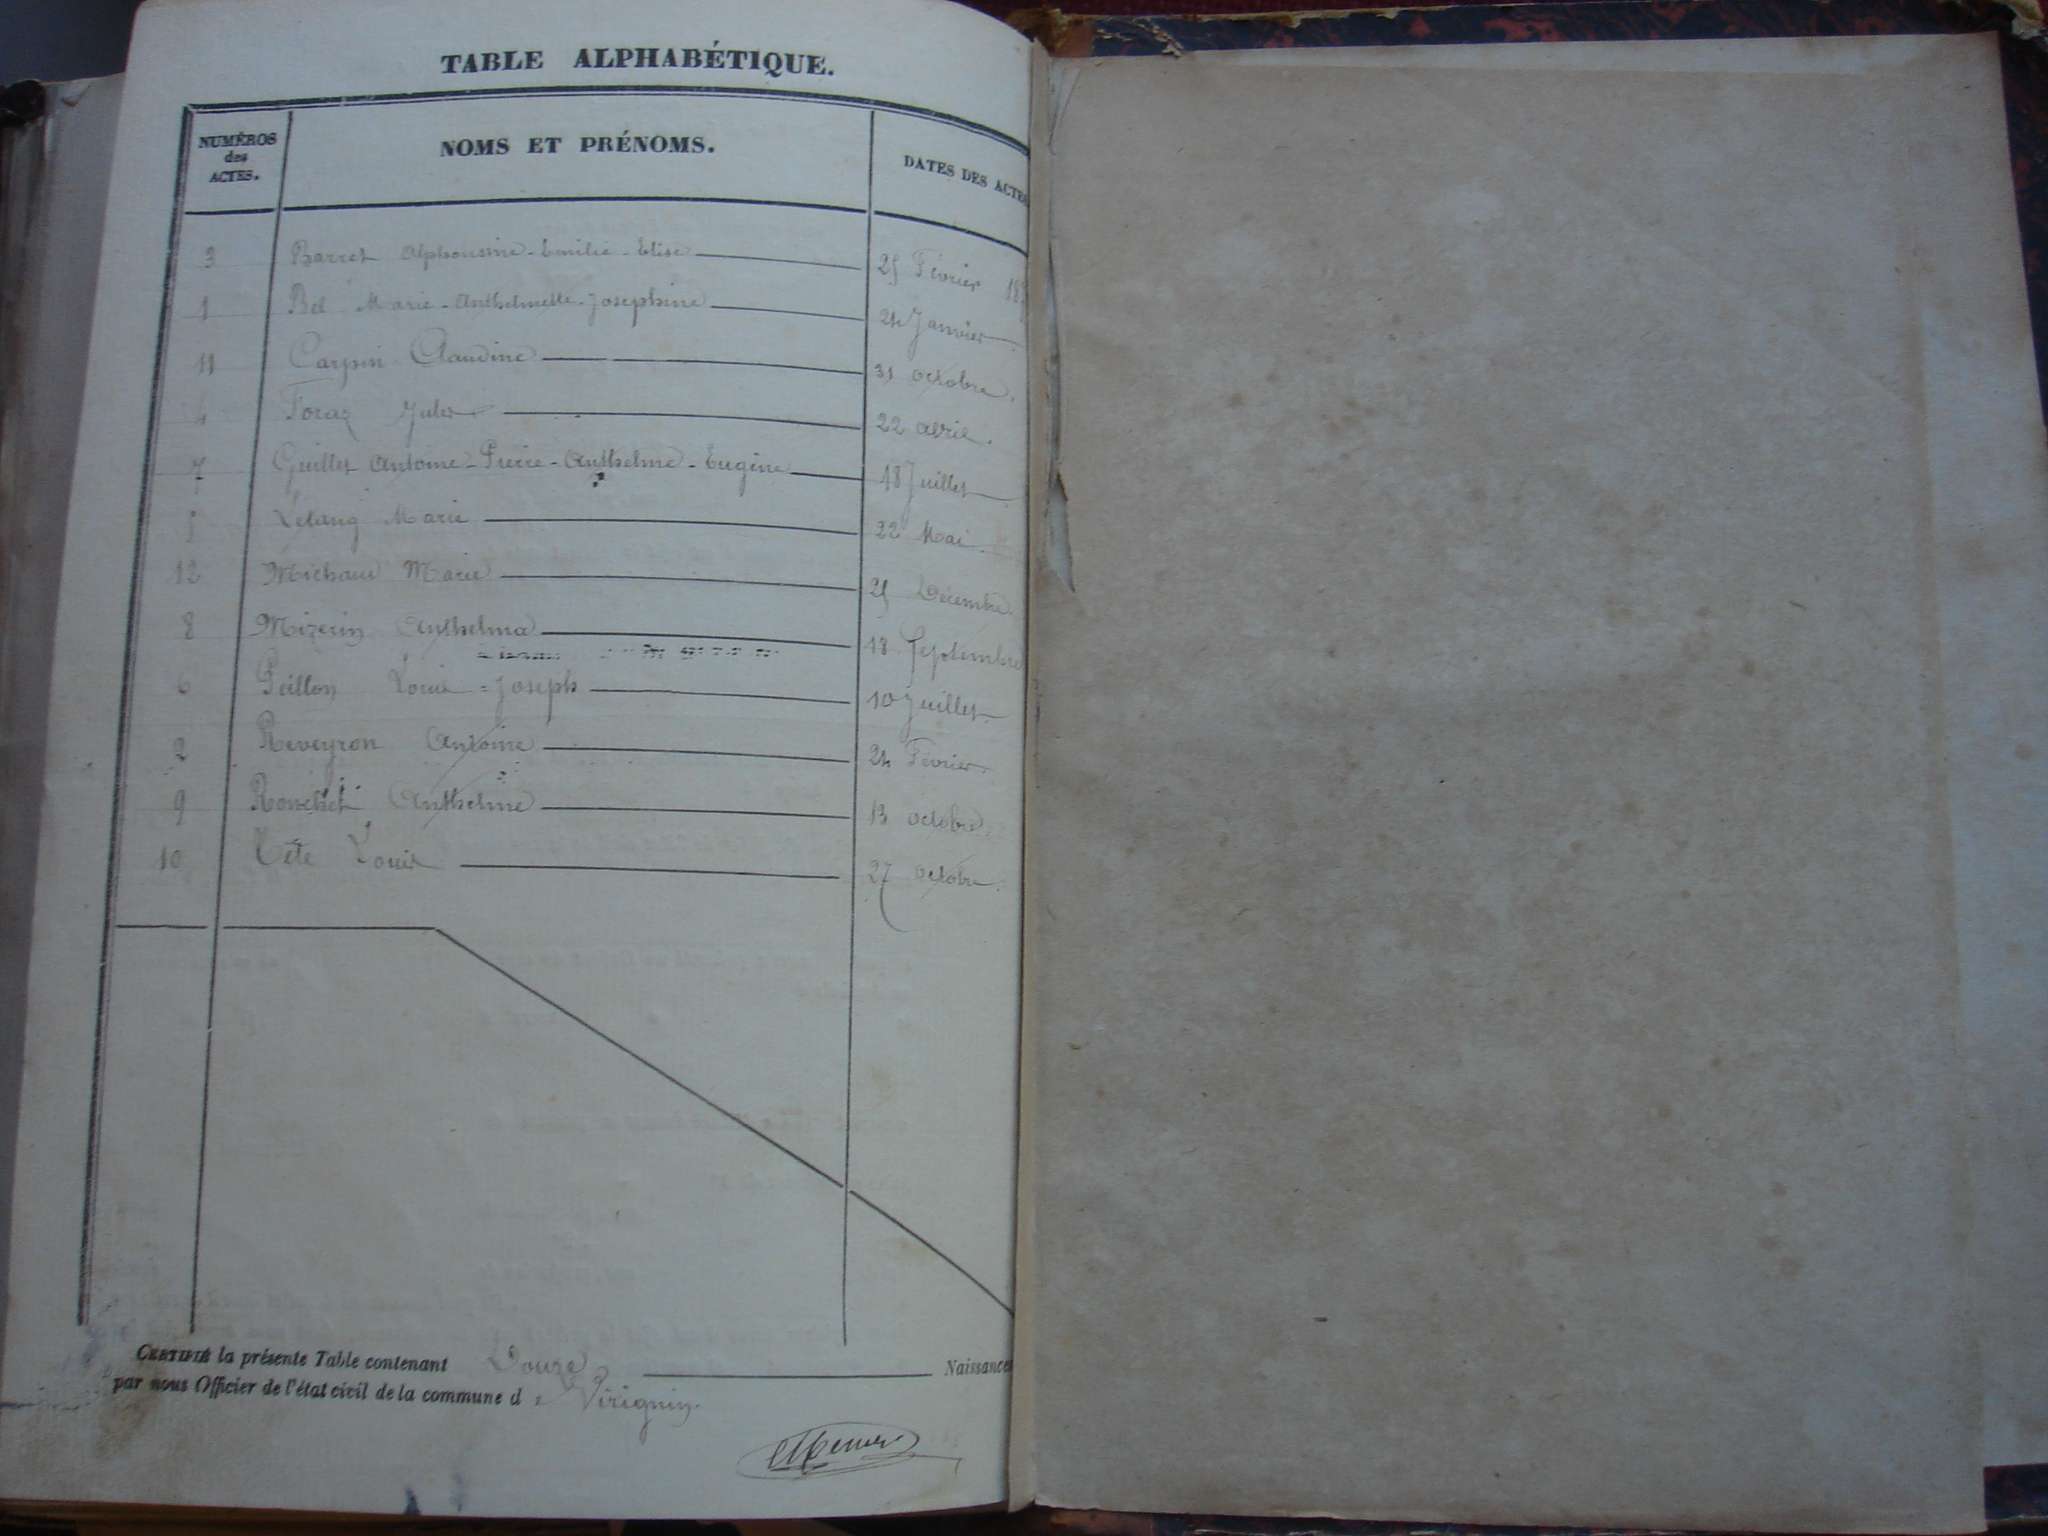 TABLE ALPHABÉTIQUE.
NUMÉROS des ACTES. NOMS ET PRÉNOMS. DATES DES ACTES
3 Barret Alphonsine-Emilie-Elise 25 Février 18
1 Bel Marie-Anthelmette-Josephine 24 Janvier
11 Carpin Claudine 31 octobre.
4 Foraz Jules 22 avril.
7 Guillet Antoine-Pierre-Anthelme-Eugène 18 Juillet
5 Létang Marie 22 Mai.
12 Michaud Marie 25 Décembre.
8 Mizerin Anthelma 18 Septembre
6 Peillon Louis=Joseph 10 Juillet.
2 Reveyron Antoine 24 Février.
9 Anthelme 13 octobre.
10 Tête Louis 27 octobre.
CERTIFIÉ la présente Table contenant Douze Naissances
par nous Officier de l'état civil de la commune d e Virignin.